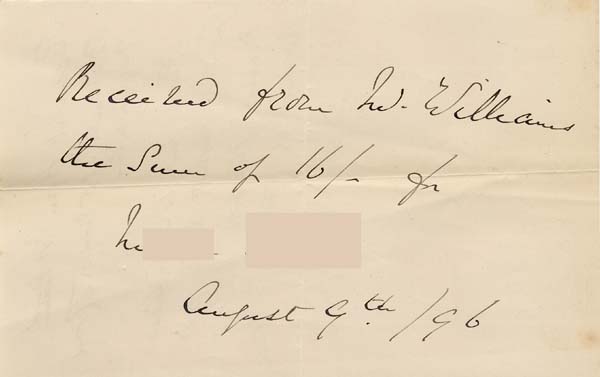 Received from Mr. Williams
the Sum of 16/- for
August 9th /96